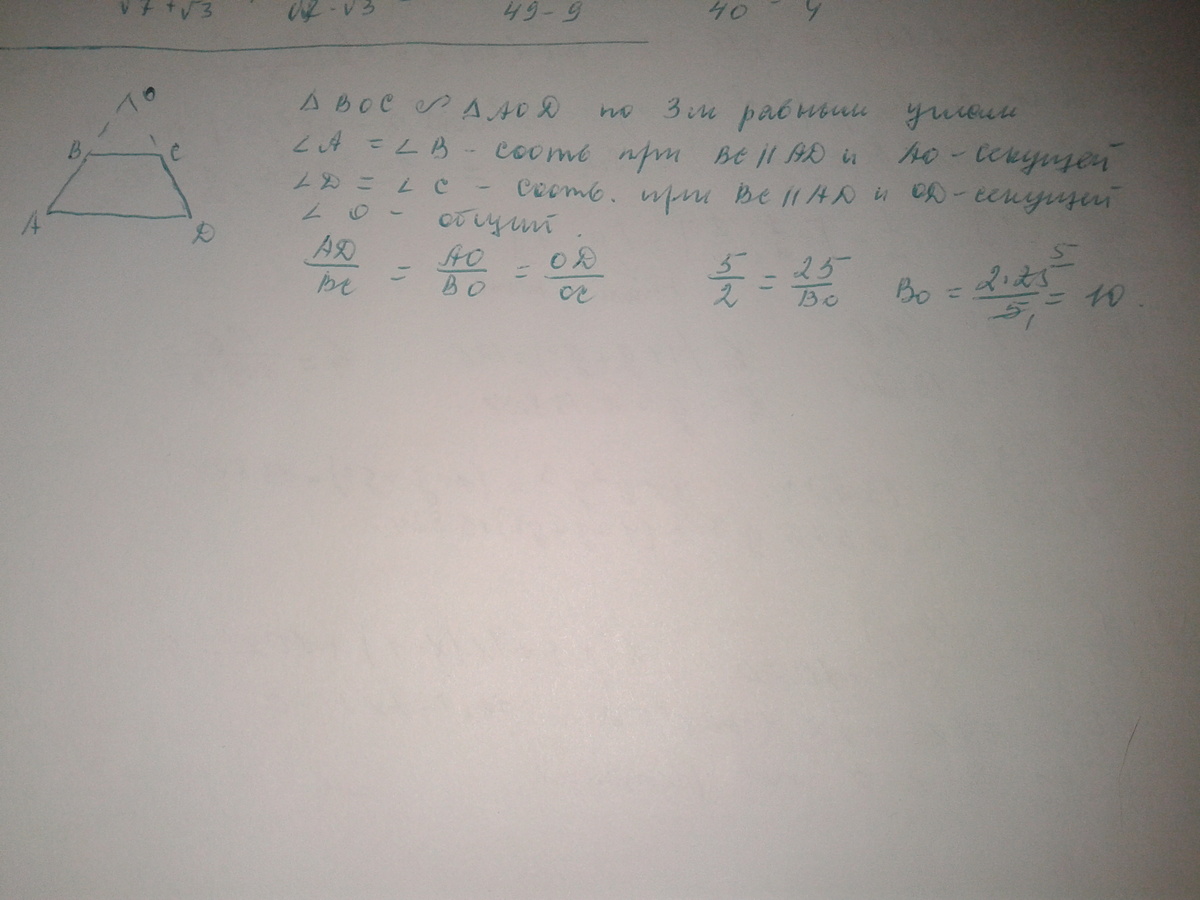 √7+√3 √7-√3 49-9 40 4
O
B C
A D
Δ BOC ∾ ΔAOD по 3м равным углам
∠A = ∠B - соотв при BC || AD и AO - секущей
∠D = ∠C - соотв. при BC || AD и OD - секущей
∠O - общий.
AD/BC = AO/BO = OD/OC 5/2 = 25/BO BO = 2·25/5 = 10.
5
1